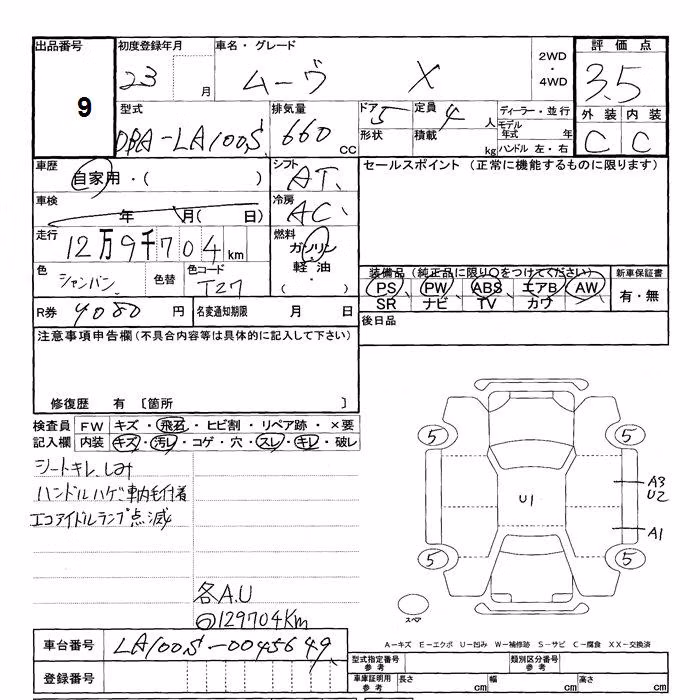 出品番号 初度登録年月 車名・グレード 2WD・4WD 評価点
9 23 月 ムーヴ X 3.5
型式 排気量 ドア 5 定員 4人 ディーラー・並行 外装 内装
DBA-LA100S 660 CC 形状 積載 kg モデル年式 年 C C
ハンドル 左・右
車歴 自家用・( ) シフト AT セールスポイント (正常に機能するものに限ります)
車検 年 月( 日) 冷房 AC
走行 12万9千704km 燃料 ガソリン・軽油・( )
色 シャンパン 色替 色コード T27
装備品 (純正品に限り○をつけてください) 新車保証書
PS PW ABS エアB AW 有・無
SR ナビ TV カワ
R券 9080円 名変通知期限 月 日 後日品
注意事項申告欄(不具合内容等は具体的に記入して下さい)
修復歴 有 〔箇所 〕
検査員 FW キズ・飛石・ヒビ割・リペア跡・×要
記入欄 内装 キズ・汚レ・コゲ・穴・スレ・キレ・破レ
シートキレ、しみ
ハンドルハゲ 車内毛付着
エコアイドルランプ点滅
5 5
U1 A3
U2
A1
5 5
スペア
各A.U
◎129704Km
A-キズ E-エクボ U-凹み W-補修跡 S-サビ C-腐食 XX-交換済
車台番号 LA100S-0045649 型式指定番号参考 類別区分番号参考
登録番号 車庫証明用参考 長さ cm 幅 cm 高さ cm